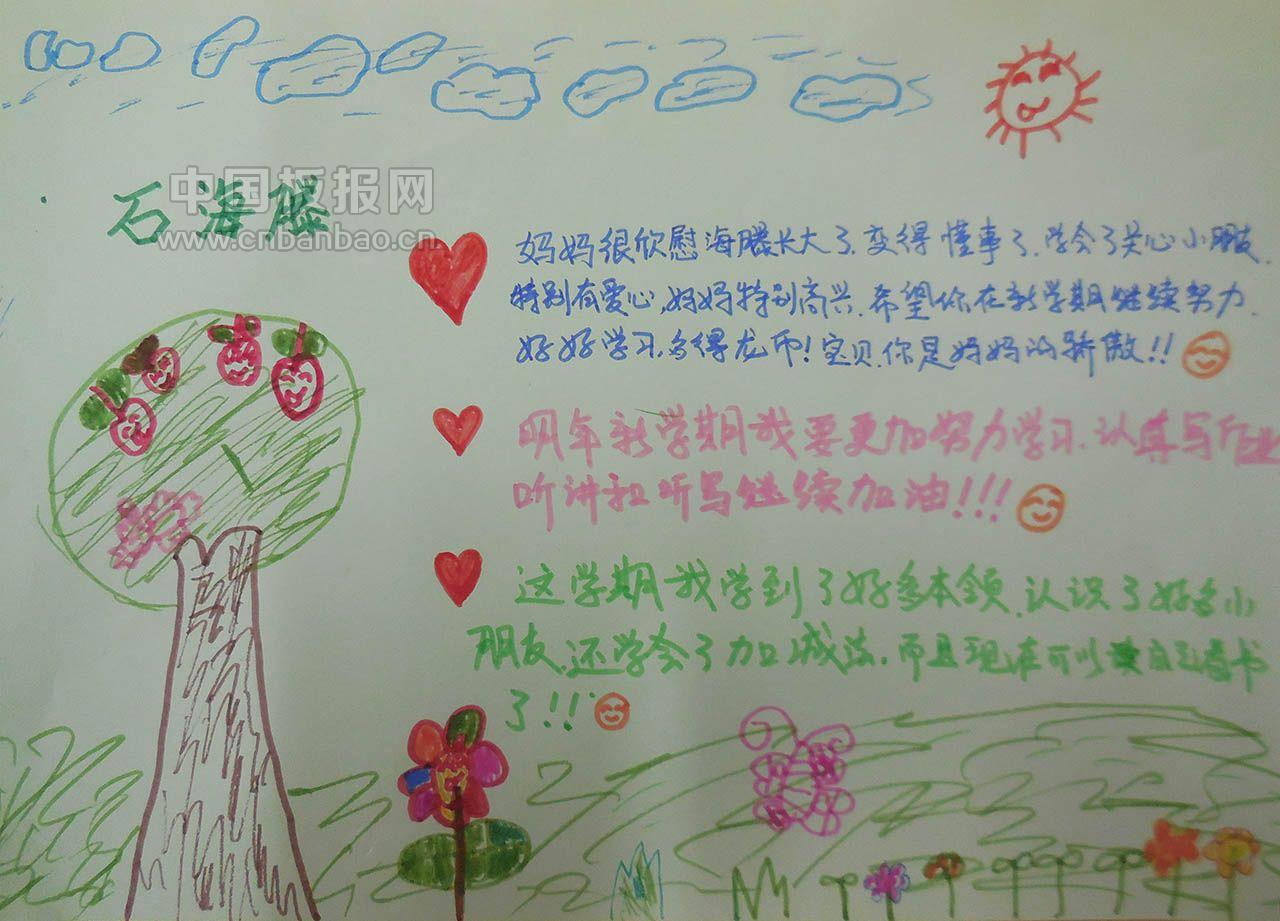 中国板报网
石海滕
www.cnbanbao.cn
妈妈很欣慰海滕长大了,变得懂事了,学会了关心小朋友,
特别有爱心,妈妈特别高兴,希望你在新学期继续努力,
好好学习,多得龙币!宝贝,你是妈妈的骄傲!!
明年新学期我要更加努力学习,认真写作业
听讲和听写继续加油!!!
这学期我学到了好多本领,认识了好多小
朋友,还学会了加减法,而且现在可以读自己看书
了!!!